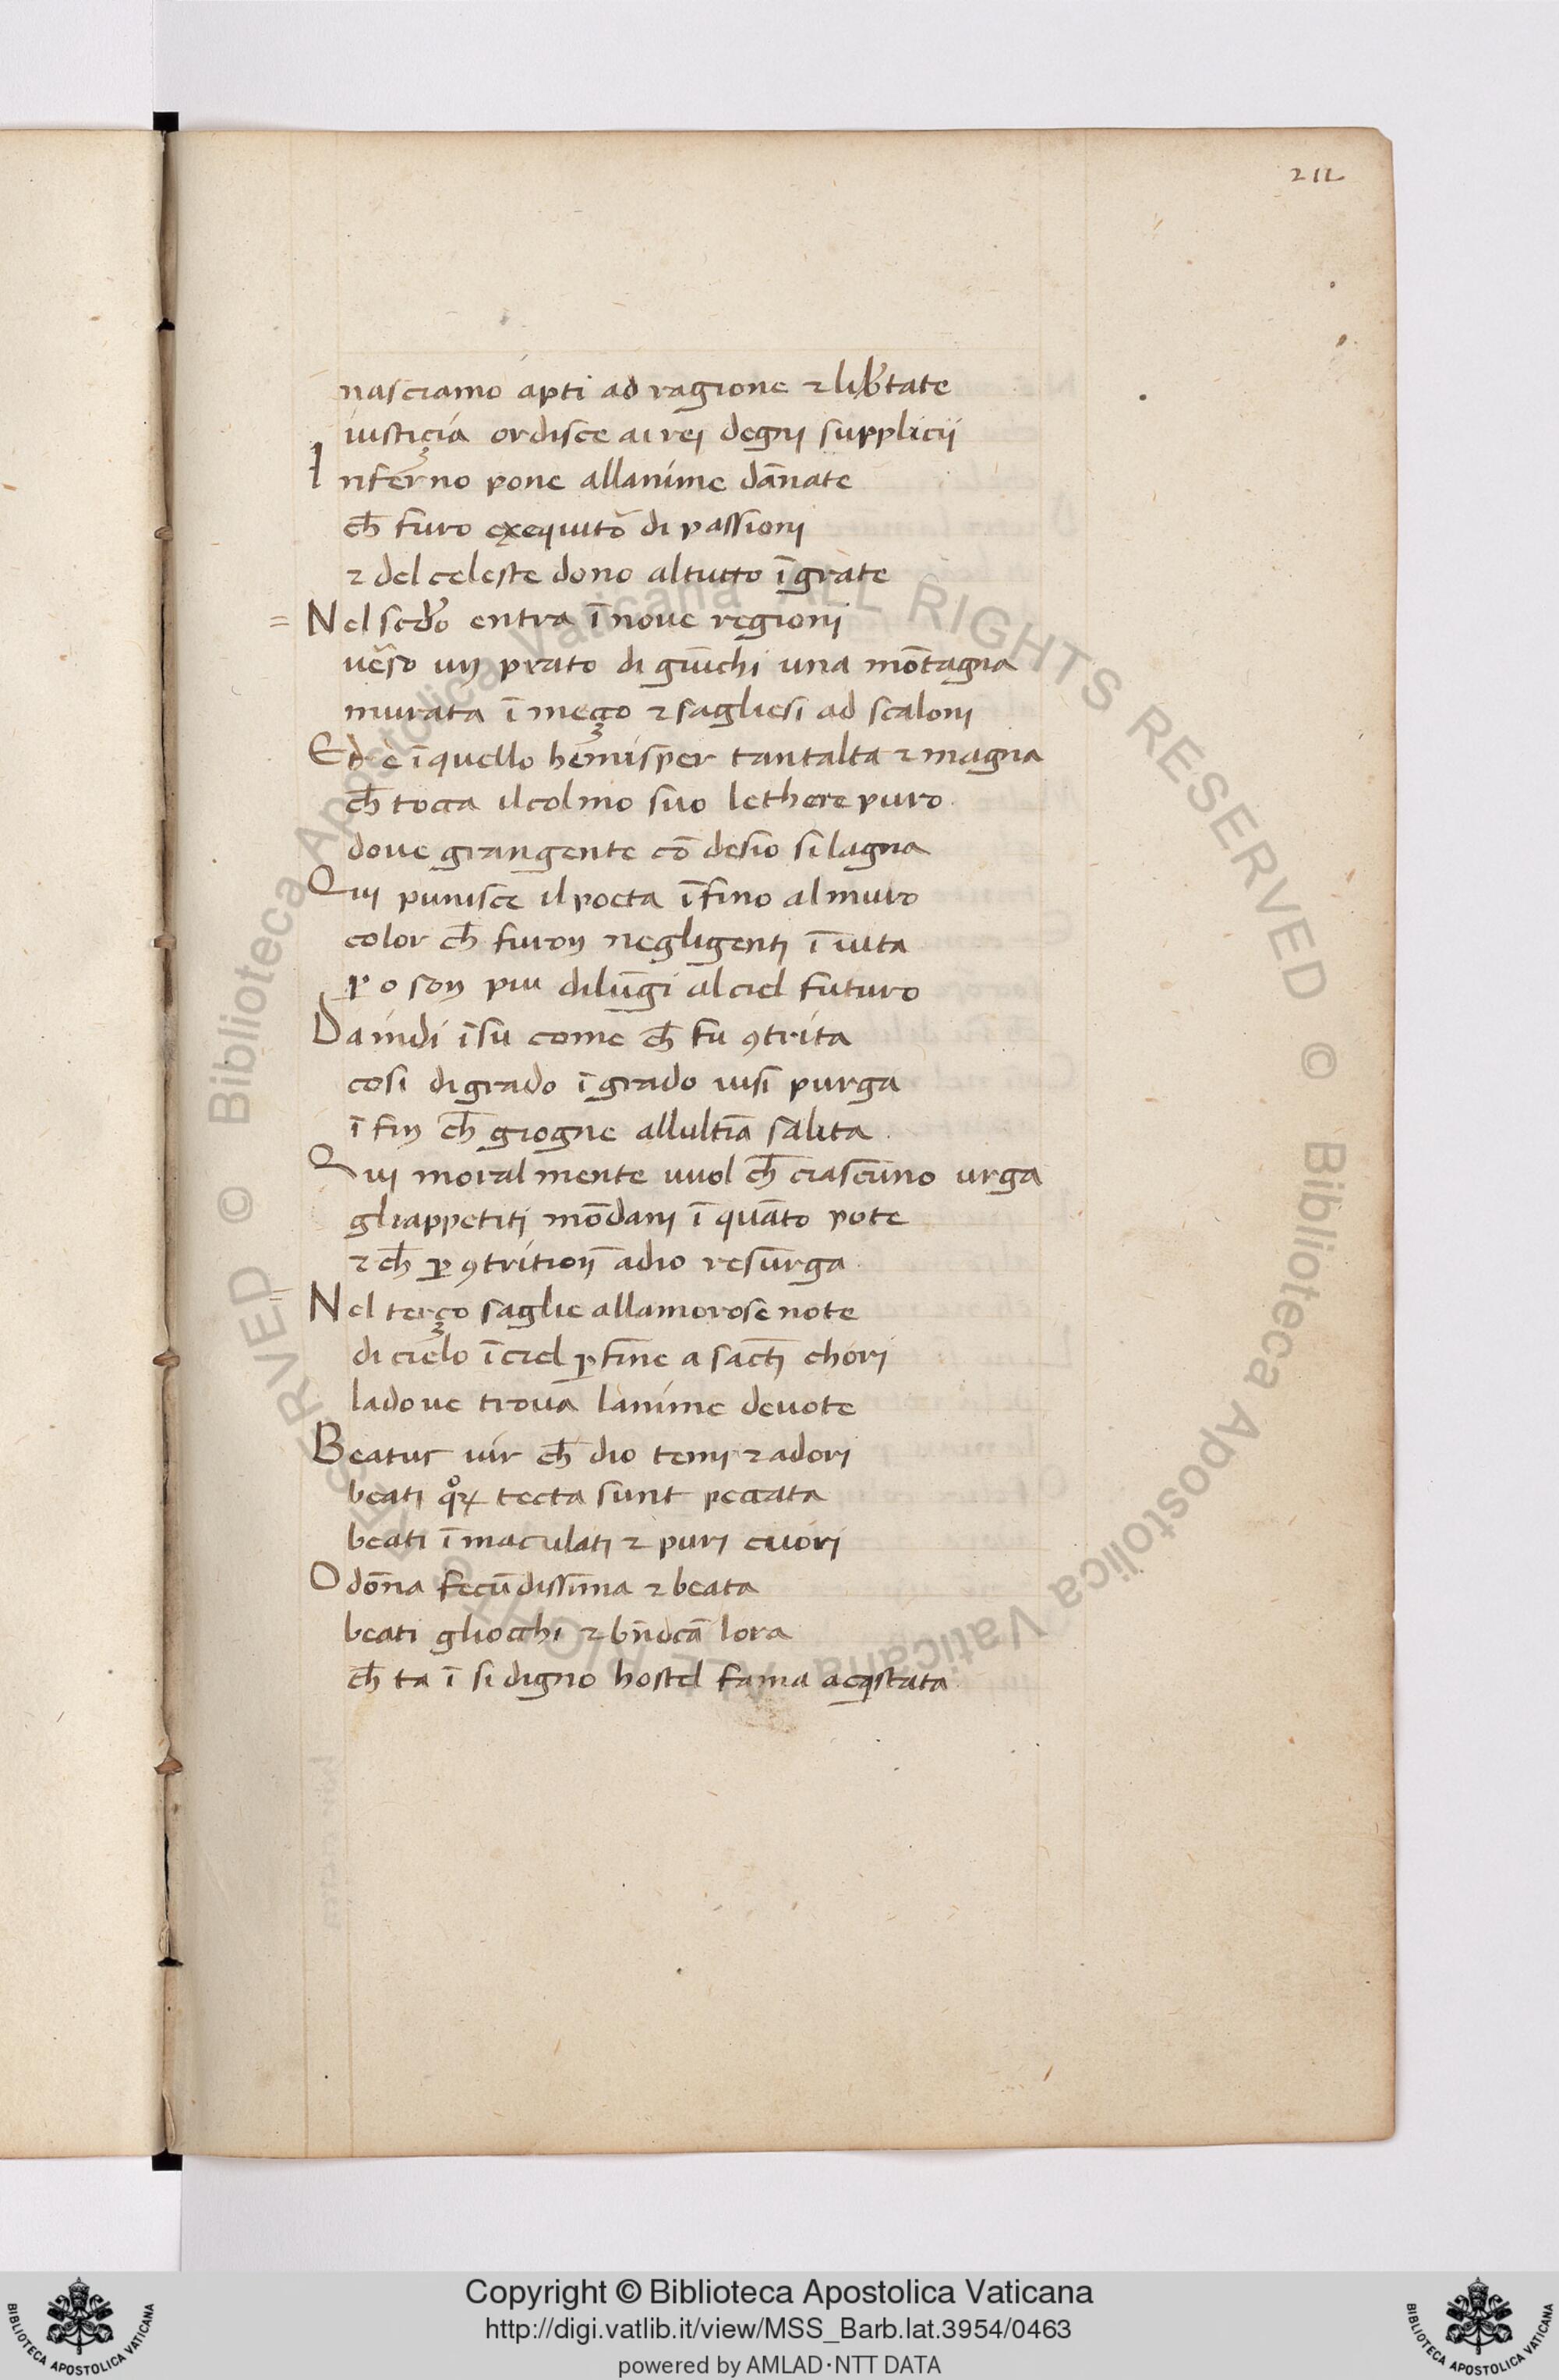 212
nasciamo apti ad ragione ⁊ lib̃tate
iusticia ordisce ai rei degni supplicij
Inferno pone allanime dānate
ch̄ furo exequitō di passioni
⁊ del celeste dono altutto īgrate
= Nel sc̄do entra ī nove regioni
ūeso un prato di giūchi una mōtagna
murata ī meço ⁊ sagliesi ad scaloni
Ed è ī quello hemisper tantalta ⁊ magna
ch̄ tocca il colmo suo lethere puro
dove giangente cō desio si lagna
Qui punisce il poeta īfino al muro
color ch̄ furon negligenti ī vita
ꝑo son piu dilūgi al ciel futuro
Da indi īsu come ch̄ fu ꝯtrita
cosi di grado ī grado uisi purga
ī fin ch̄ giogne allultīa salita
Qui moralmente vuol ch̄ ciascūno urga
gliappetiti mōdani ī quāto pote
⁊ ch̄ ꝑ ꝯtrition̄ adio resurga
= Nel terço saglie allamorose note
di cielo ī ciel ꝑfine a sācti chori
ladove trova lanime devote
Beatus vir ch̄ dio temi ⁊ adori
beati qͦꝝ tecta sunt peccata
beati īmaculati ⁊ puri cuori
O dōna fecūdissīma ⁊ beata
beati gliocchi ⁊ bn̄dcā lora
ch̄ ta ī si digno hostel fama acqstata
Copyright © Biblioteca Apostolica Vaticana
http://digi.vatlib.it/view/MSS_Barb.lat.3954/0463
powered by AMLAD·NTT DATA
BIBLIOTECA APOSTOLICA VATICANA
BIBLIOTECA APOSTOLICA VATICANA
© Biblioteca Apostolica Vaticana ALL RIGHTS RESERVED © Biblioteca Apostolica Vaticana ALL RIGHTS RESERVED